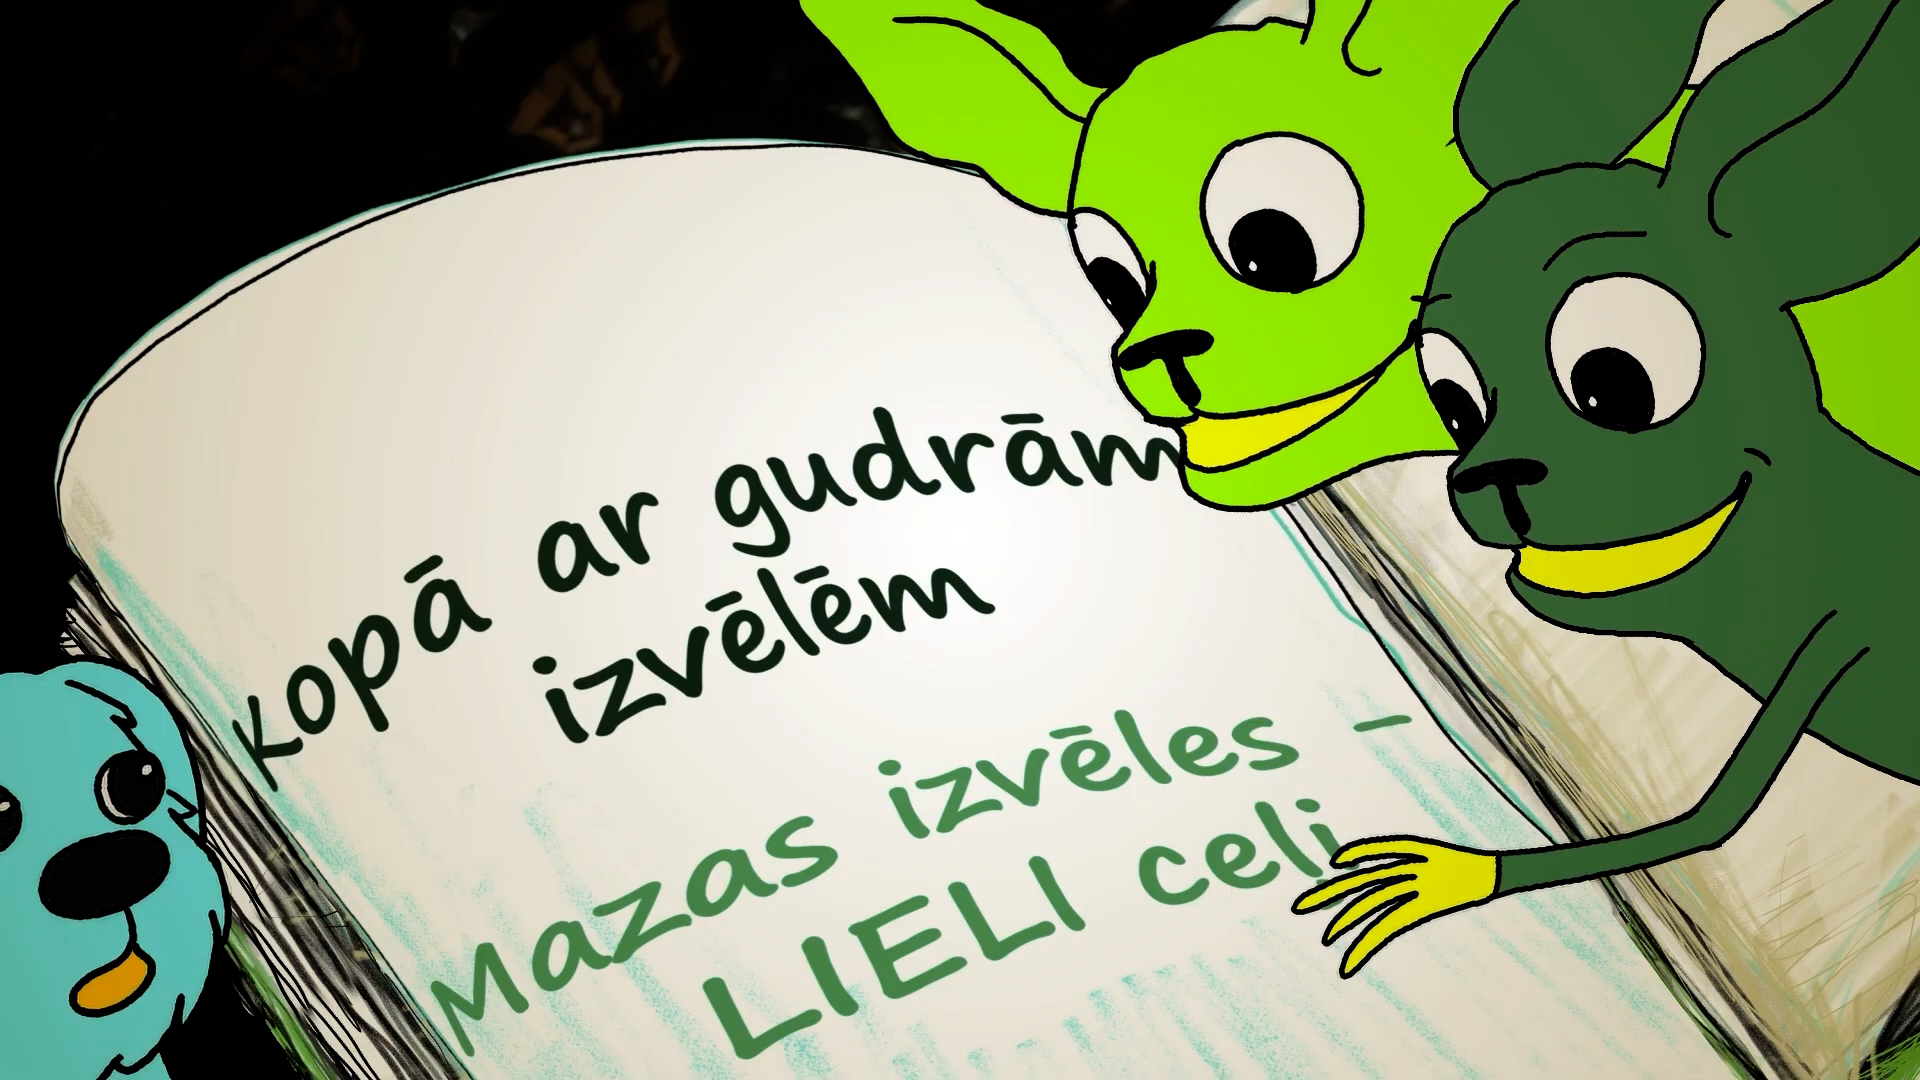 kopā ar gudrām
izvēlēm
Mazas izvēles –
LIELI ceļi